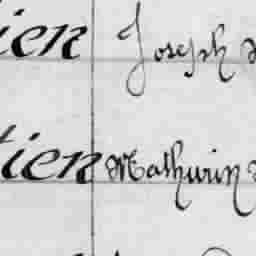 ien Joseph
tien Mathurin